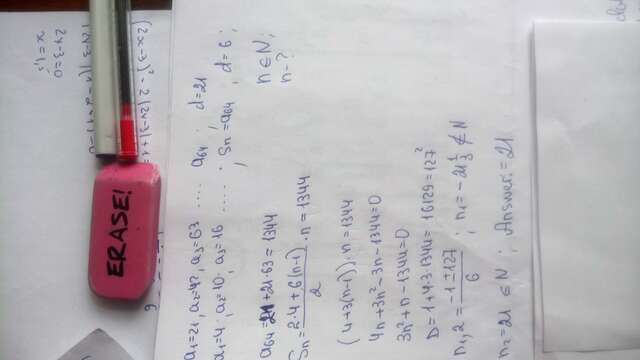 a₁=21, a₂=42, a₃=63 ..... a₆₄ ; d=21
a₁=4, a₂=10, a₃=16 ..... ; Sₙ=a₆₄ ; d=6 ;
n∈N;
n-?
a₆₄=21+21·63=1344
Sₙ=(2·4+6(n-1))/2·n=1344
(4+3(n-1))·n=1344
4n+3n²-3n-1344=0
3n²+n-1344=0
D=1+4·3·1344=16129=127²
n₁,₂=(-1±127)/6 ; n₁=-21⅓∉N
n₂=21∈N ; Answer:=21
ERASE!
2x-3=0